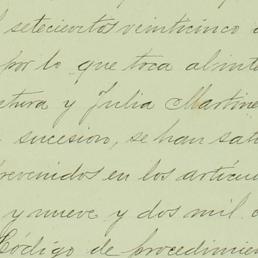 l setecientos veinticinco
por lo que toca al inte
atura y Julia Martine
sucesion, se han sat
revenidos en los articu
y nueve y dos mil
Código de procedimien